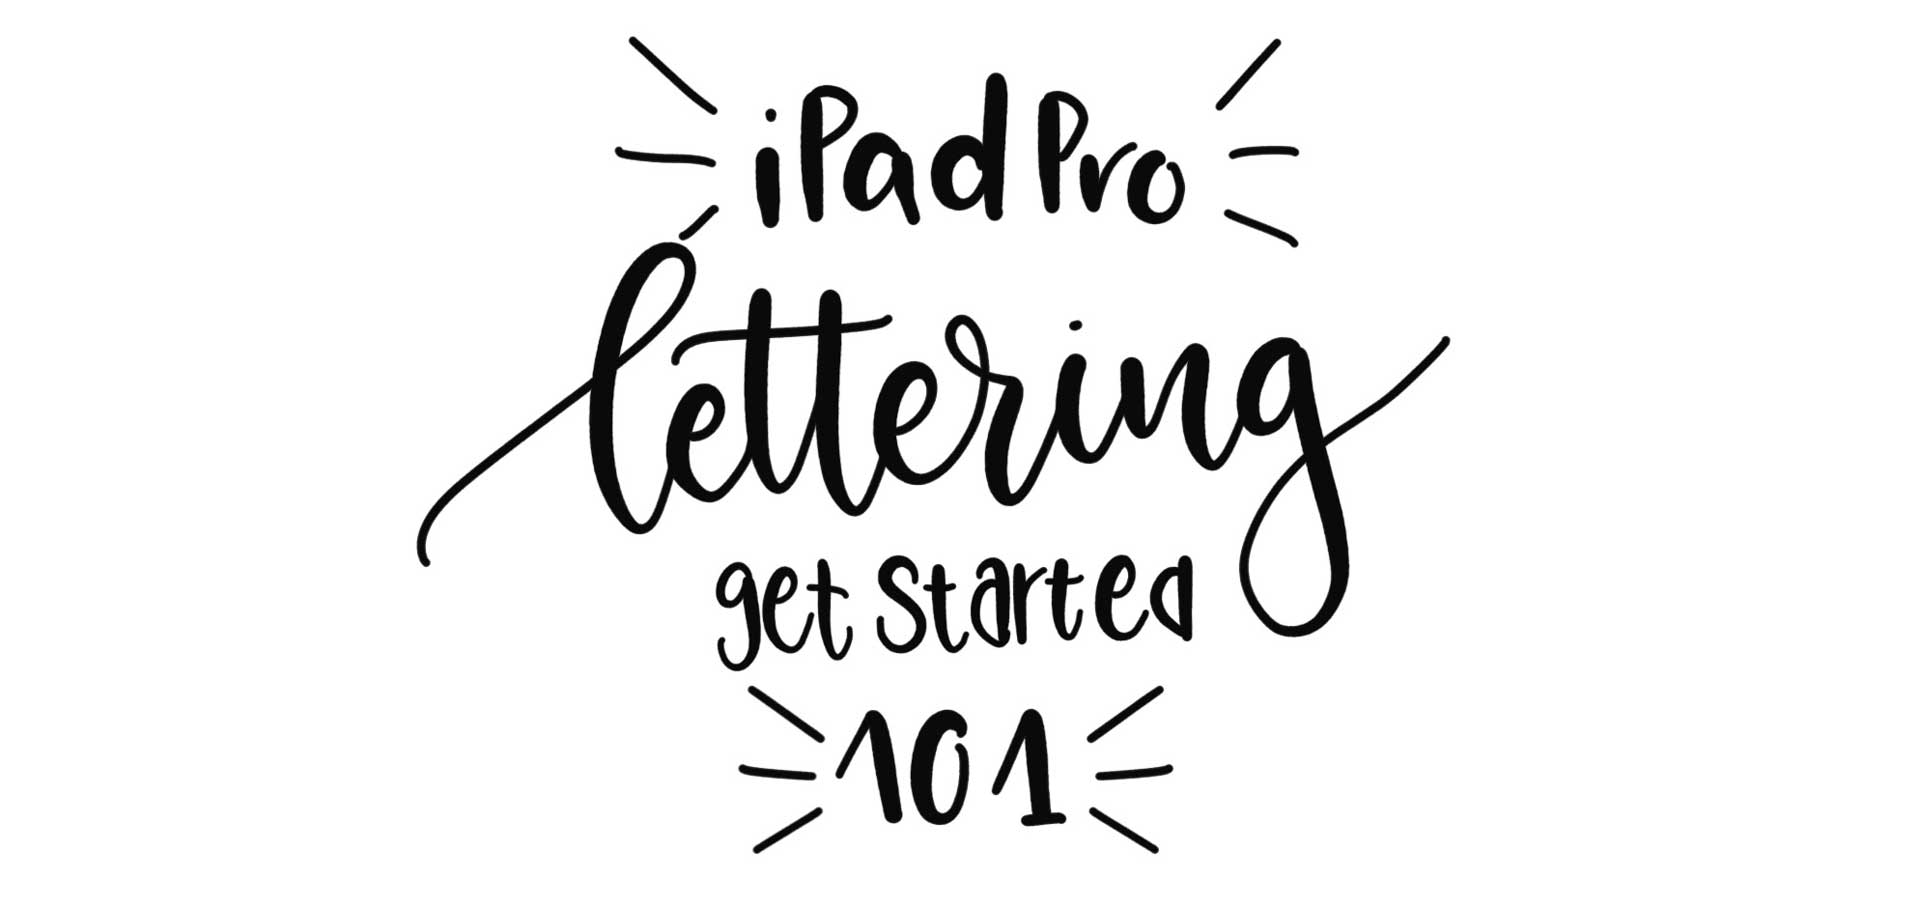 iPad Pro
lettering
get started
101